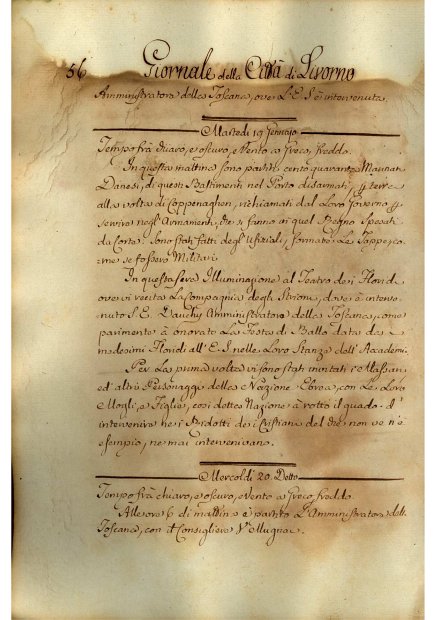 56 Giornale della Città di Livorno
Amministratore della Toscana, ove L'E.S. è intervenuta.
Martedi 19 Gennajo
Tempo frà chiaro, e oscuro, e Vento a Greco, freddo.
In questa mattina sono partiti cento quaranta Marinari
Danesi, di questi Bastimenti nel Porto disarmati, p terre
alla volta di Coppenaghen, richiamati dal Loro Governo p
servire negl'Armamenti, che si fanno in quel Regno Spesati
da Corte. Sono stati fatti degl'Ufiziali, formate Le Tappe, co
me se fossero Militari.
In questa sera Illuminazione al Teatro dei Floridi
ove vi recita La Compagnia degli Strioni, dove è interve
nuto S.E. Dauchy Amministratore della Toscana, come
parimente à onorato La Festa di Ballo data da
medesimi Floridi all'E.S. nelle Loro Stanze dell'Accademi
Per La prima volta vi sono stati invitati i Massari
ed'altri Personaggi della Nazione Ebrea, con Le Loro
Mogli, e Figlie, così detta Nazione à rotto il guado d'
intervenire nei Ridotti dei Cristiani del che non ve n'è
esempio, ne mai intervenivano.
Mercoldi 20 Detto
Tempo frà chiaro, e oscuro, e Vento a Greco freddo.
Alle ore 6 di mattina è partito L'Amministratore della
Toscana, con il Consigliere